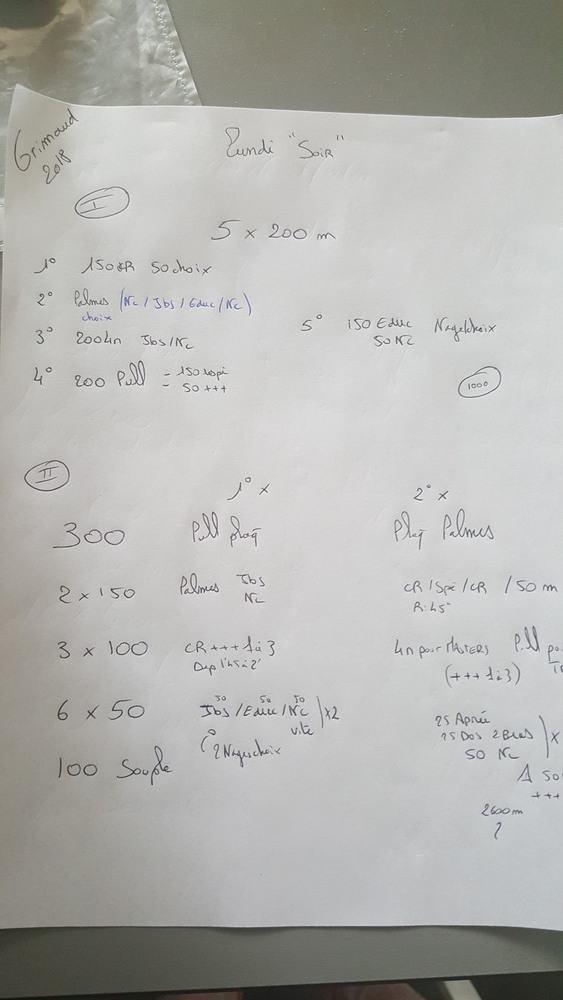 Grimaud
2018
Lundi "Soir"
I
5 x 200 m
1° 150 CR 50 choix
2° Palmes (NC / Jbs / Educ / NC)
choix
3° 200 4n Jbs/NC
4° 200 Pull = 150 respi
50 +++
5° 150 Educ Nagechoix
50 NC
1000
II
1° x
2° x
300 Pull plaq
Plaq Palmes
2 x 150 Palmes Jbs
NC
CR / Spé / CR / 50 m
R: 45"
3 x 100 CR +++ 1 à 3
Dep 1'45 à 2'
4n pour MASTERS Pull
(+++ 1 à 3)
6 x 50
50 50 50
Jbs / Educ / NC ) x2
vite
2 Nages choix
25 Apnée
25 Dos 2 Bras
50 NC
) x
100 Souple
A 50
+++
2600m
?